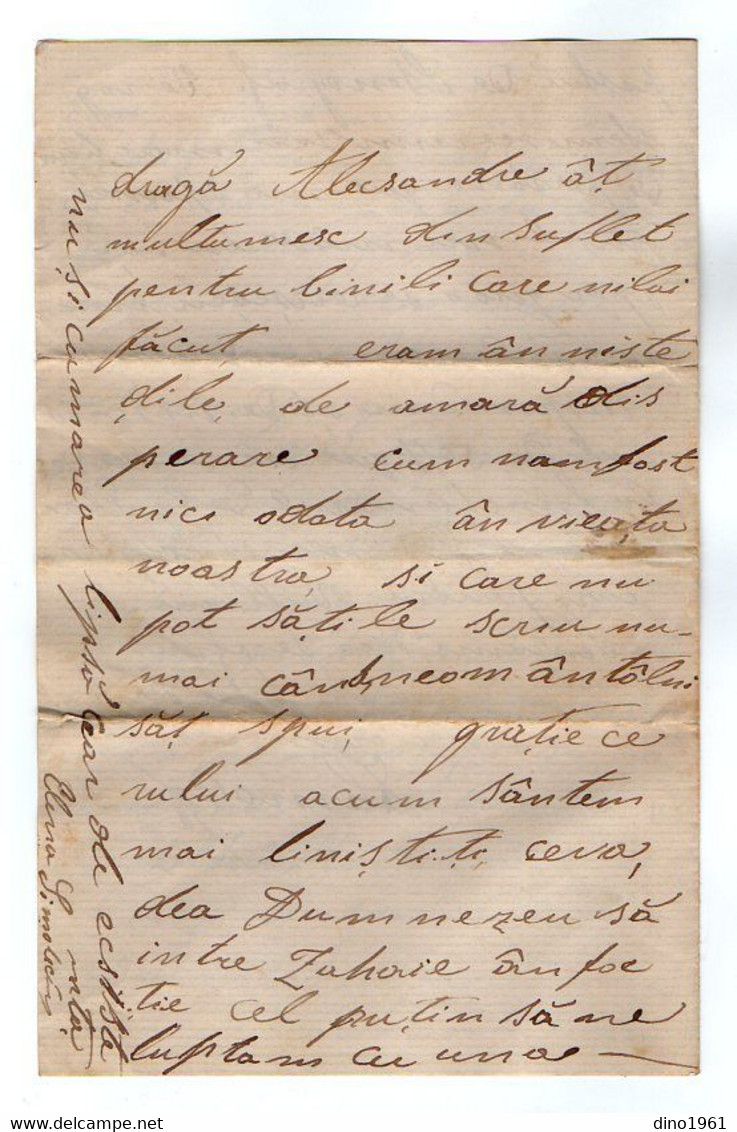 dragă Alecsandre ât
multumesc din suflet
pentru binili care nilai
făcut, eram ân niste
dile, de amară dis
perare cum nam fost
nici odata ân vieața
noastra, si care nu
pot sățile scriu nu-
mai când neom ântâlni
săț spui, grație ce
rului acum sântem
mai liniștiți ceva,
dea Dumnezeu să
intre Zaharie ân foc
tie cel puțin să ne
luptam cu una —
nu și cu marea lipsă ear de ecsista
Elena
dino1961
delcampe.net